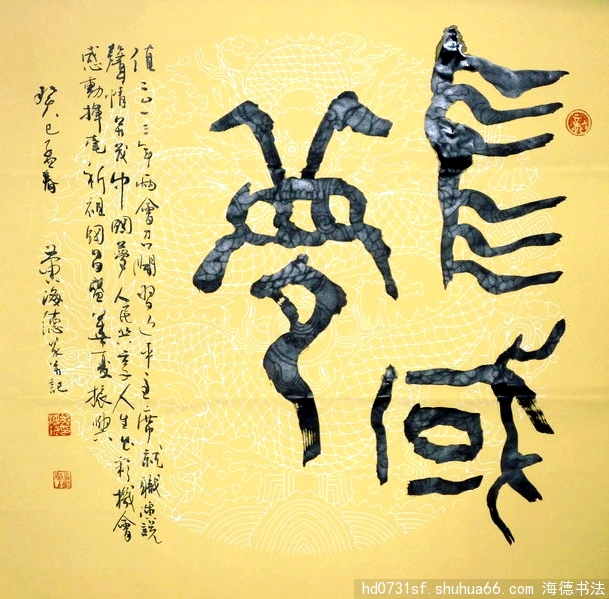 中國
夢
值二〇一三年兩會召開習近平主席就職演説
聲情並茂中國夢人民共享人生出彩機會
感動揮毫祈祖國昌盛華夏振興
癸巳孟春
黄海德
記
hd0731sf.shuhua66.com 海德书法